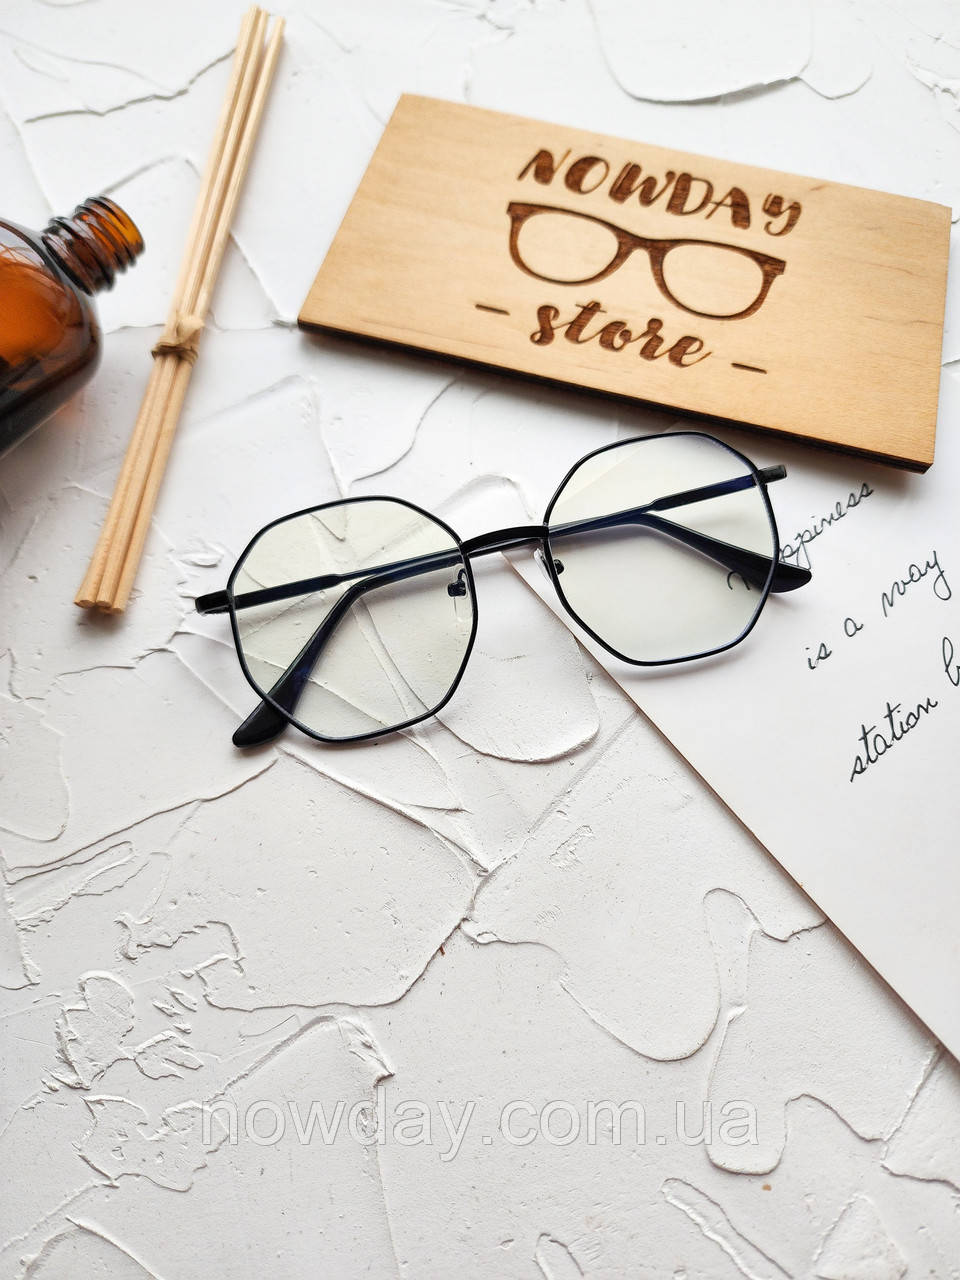 NOWDAY
- store -
Happiness
is a way
station
nowday.com.ua